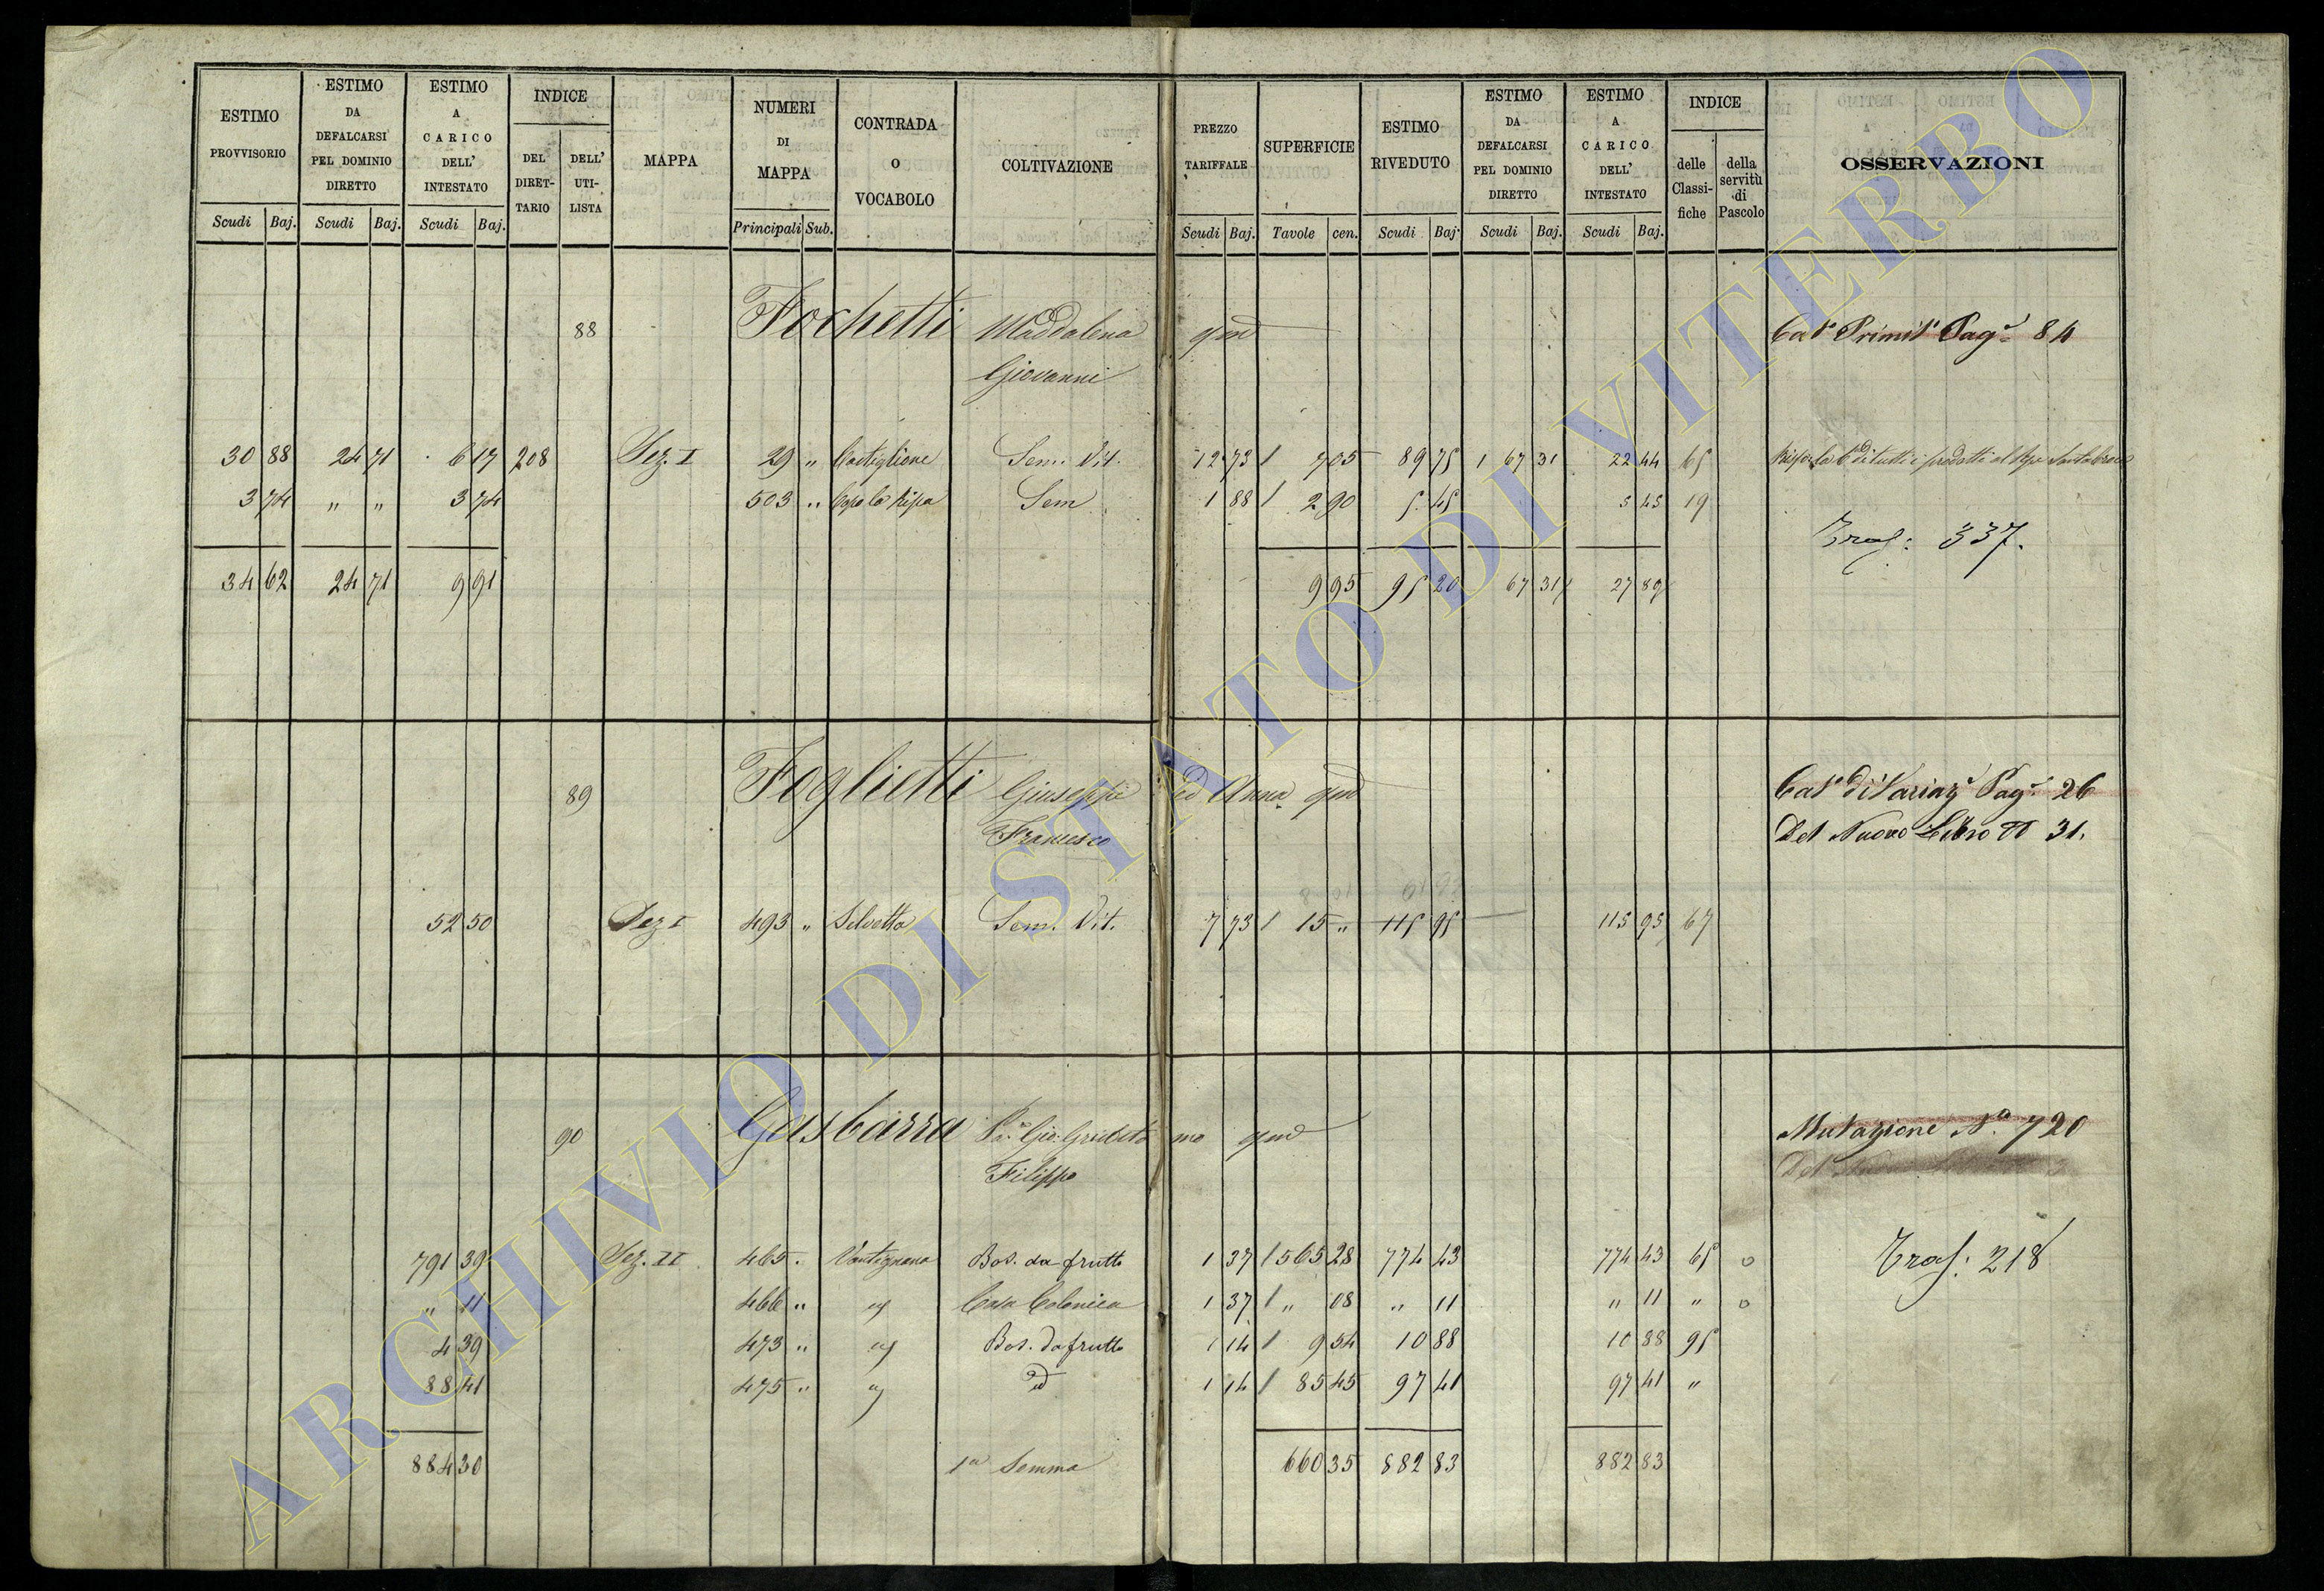 ESTIMO PROVVISORIO Scudi Baj.
ESTIMO DA DEFALCARSI PEL DOMINIO DIRETTO Scudi Baj.
ESTIMO A CARICO DELL' INTESTATO Scudi Baj.
INDICE DEL DIRET- TARIO DELL' UTI- LISTA
MAPPA
NUMERI DI MAPPA Principali Sub.
CONTRADA O VOCABOLO
COLTIVAZIONE
PREZZO TARIFFALE Scudi Baj.
SUPERFICIE Tavole cen.
ESTIMO RIVEDUTO Scudi Baj.
ESTIMO DA DEFALCARSI PEL DOMINIO DIRETTO Scudi Baj.
ESTIMO A CARICO DELL' INTESTATO Scudi Baj.
INDICE delle Classi- fiche della servitù di Pascolo
OSSERVAZIONI
88 Fochetti Maddalena qm Cato Primito Pag. 84
Giovanni
30 88 24 71 6 17 208 Sez. I 29 " Castiglione Sem. Vit. 12 73 / 7 05 89 75 1 67 31 22 44 65
3 74 " " 3 74 503 " Capo la Ripa Sem 1 88 / 2 90 5 45 5 45 19
Tras: 337.
34 62 24 71 9 91 9 95 95 20 67 31 27 89
89 Foglietti Giuseppe ed Anna qm Cato di Variaz. Pag. 26
Francesco Del Nuovo Libro 31.
52 50 Sez I 493 " Selvotta Sem. Vit. 7 73 / 15 " 115 95 115 95 67
90 Gasbarra Gio: qm Mutazione No. 720
Filippo
791 39 Sez. II 465 . Vantignana Bos. da frutto 1 37 / 565 28 774 43 774 43 65 0 Tras: 218
" 11 466 " Casa Colonica 1 37 / " 08 " 11 " 11 " 0
4 39 473 " Bos. da frutto 1 14 / 9 54 10 88 10 88 95
88 41 475 " id 1 14 / 85 45 97 41 97 41 "
884 30 1a Somma 660 35 882 83 882 83
ARCHIVIO DI STATO DI VITERBO